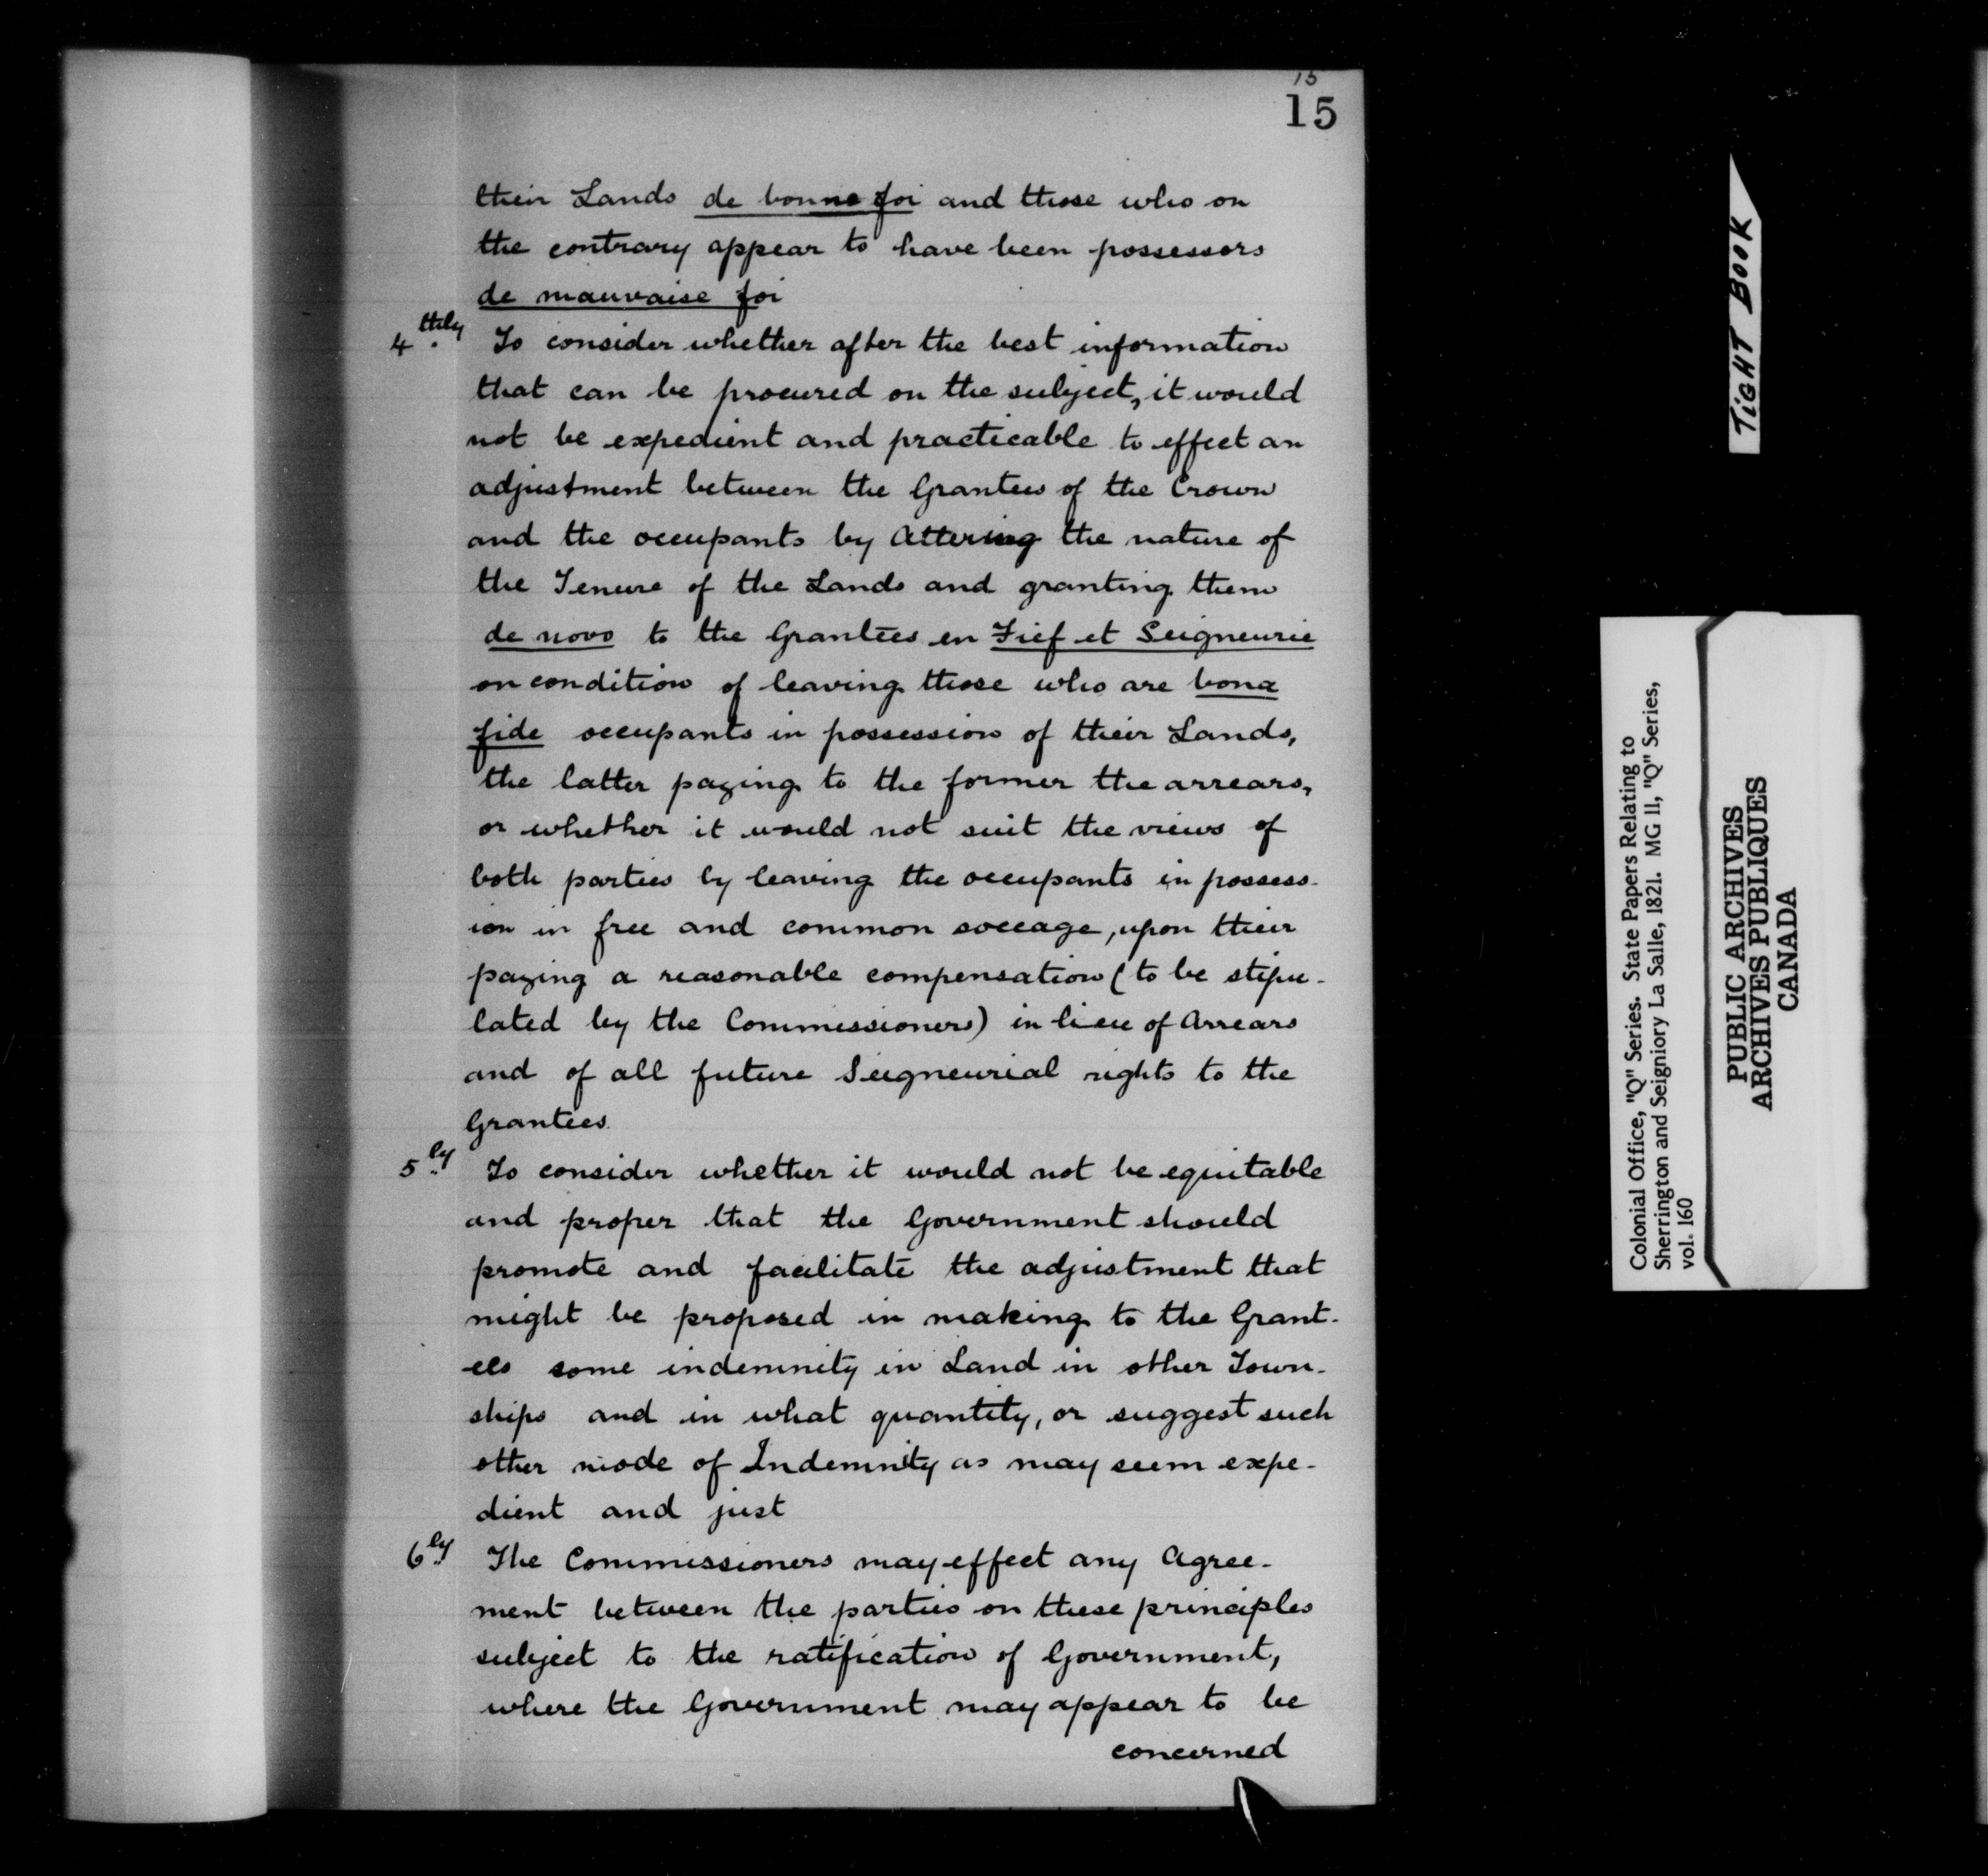 15
15
their Lands de bonne foi and those who on
the contrary appear to have been possessors
de mauvaise foi
4thly. To consider whether after the best information
that can be procured on the subject, it would
not be expedient and practicable to effect an
adjustment between the Grantees of the Crown
and the occupants by Altering the nature of
the Tenure of the Lands and granting them
de novo to the Grantees en Fief et Seigneurie
on condition of leaving those who are bona
fide occupants in possession of their Lands,
the latter paying to the former the arrears,
or whether it would not suit the views of
both parties by leaving the occupants in possess-
ion in free and common soccage, upon their
paying a reasonable compensation (to be stipu-
lated by the Commissioners) in lieu of Arrears
and of all future Seigneurial rights to the
Grantees.
5ly. To consider whether it would not be equitable
and proper that the Government should
promote and facilitate the adjustment that
might be proposed in making to the Grant-
ees some indemnity in Land in other Town-
ships and in what quantity, or suggest such
other mode of Indemnity as may seem expe-
dient and just
6ly. The Commissioners may effect any Agree-
ment between the parties on these principles
subject to the ratification of Government,
where the Government may appear to be
concerned
TIGHT BOOK
Colonial Office, "Q" Series. State Papers Relating to
Sherrington and Seigniory La Salle, 1821. MG 11, "Q" Series,
vol. 160
PUBLIC ARCHIVES
ARCHIVES PUBLIQUES
CANADA